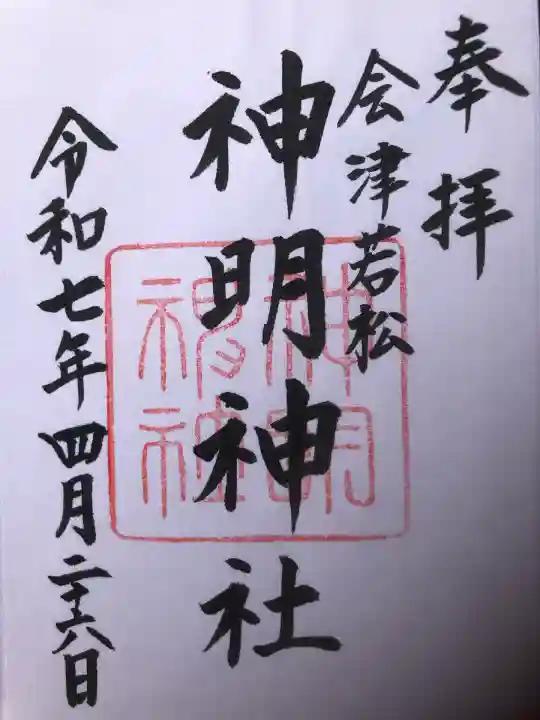 奉拝
会津若松
神明神社
神明神社
令和七年四月二十六日